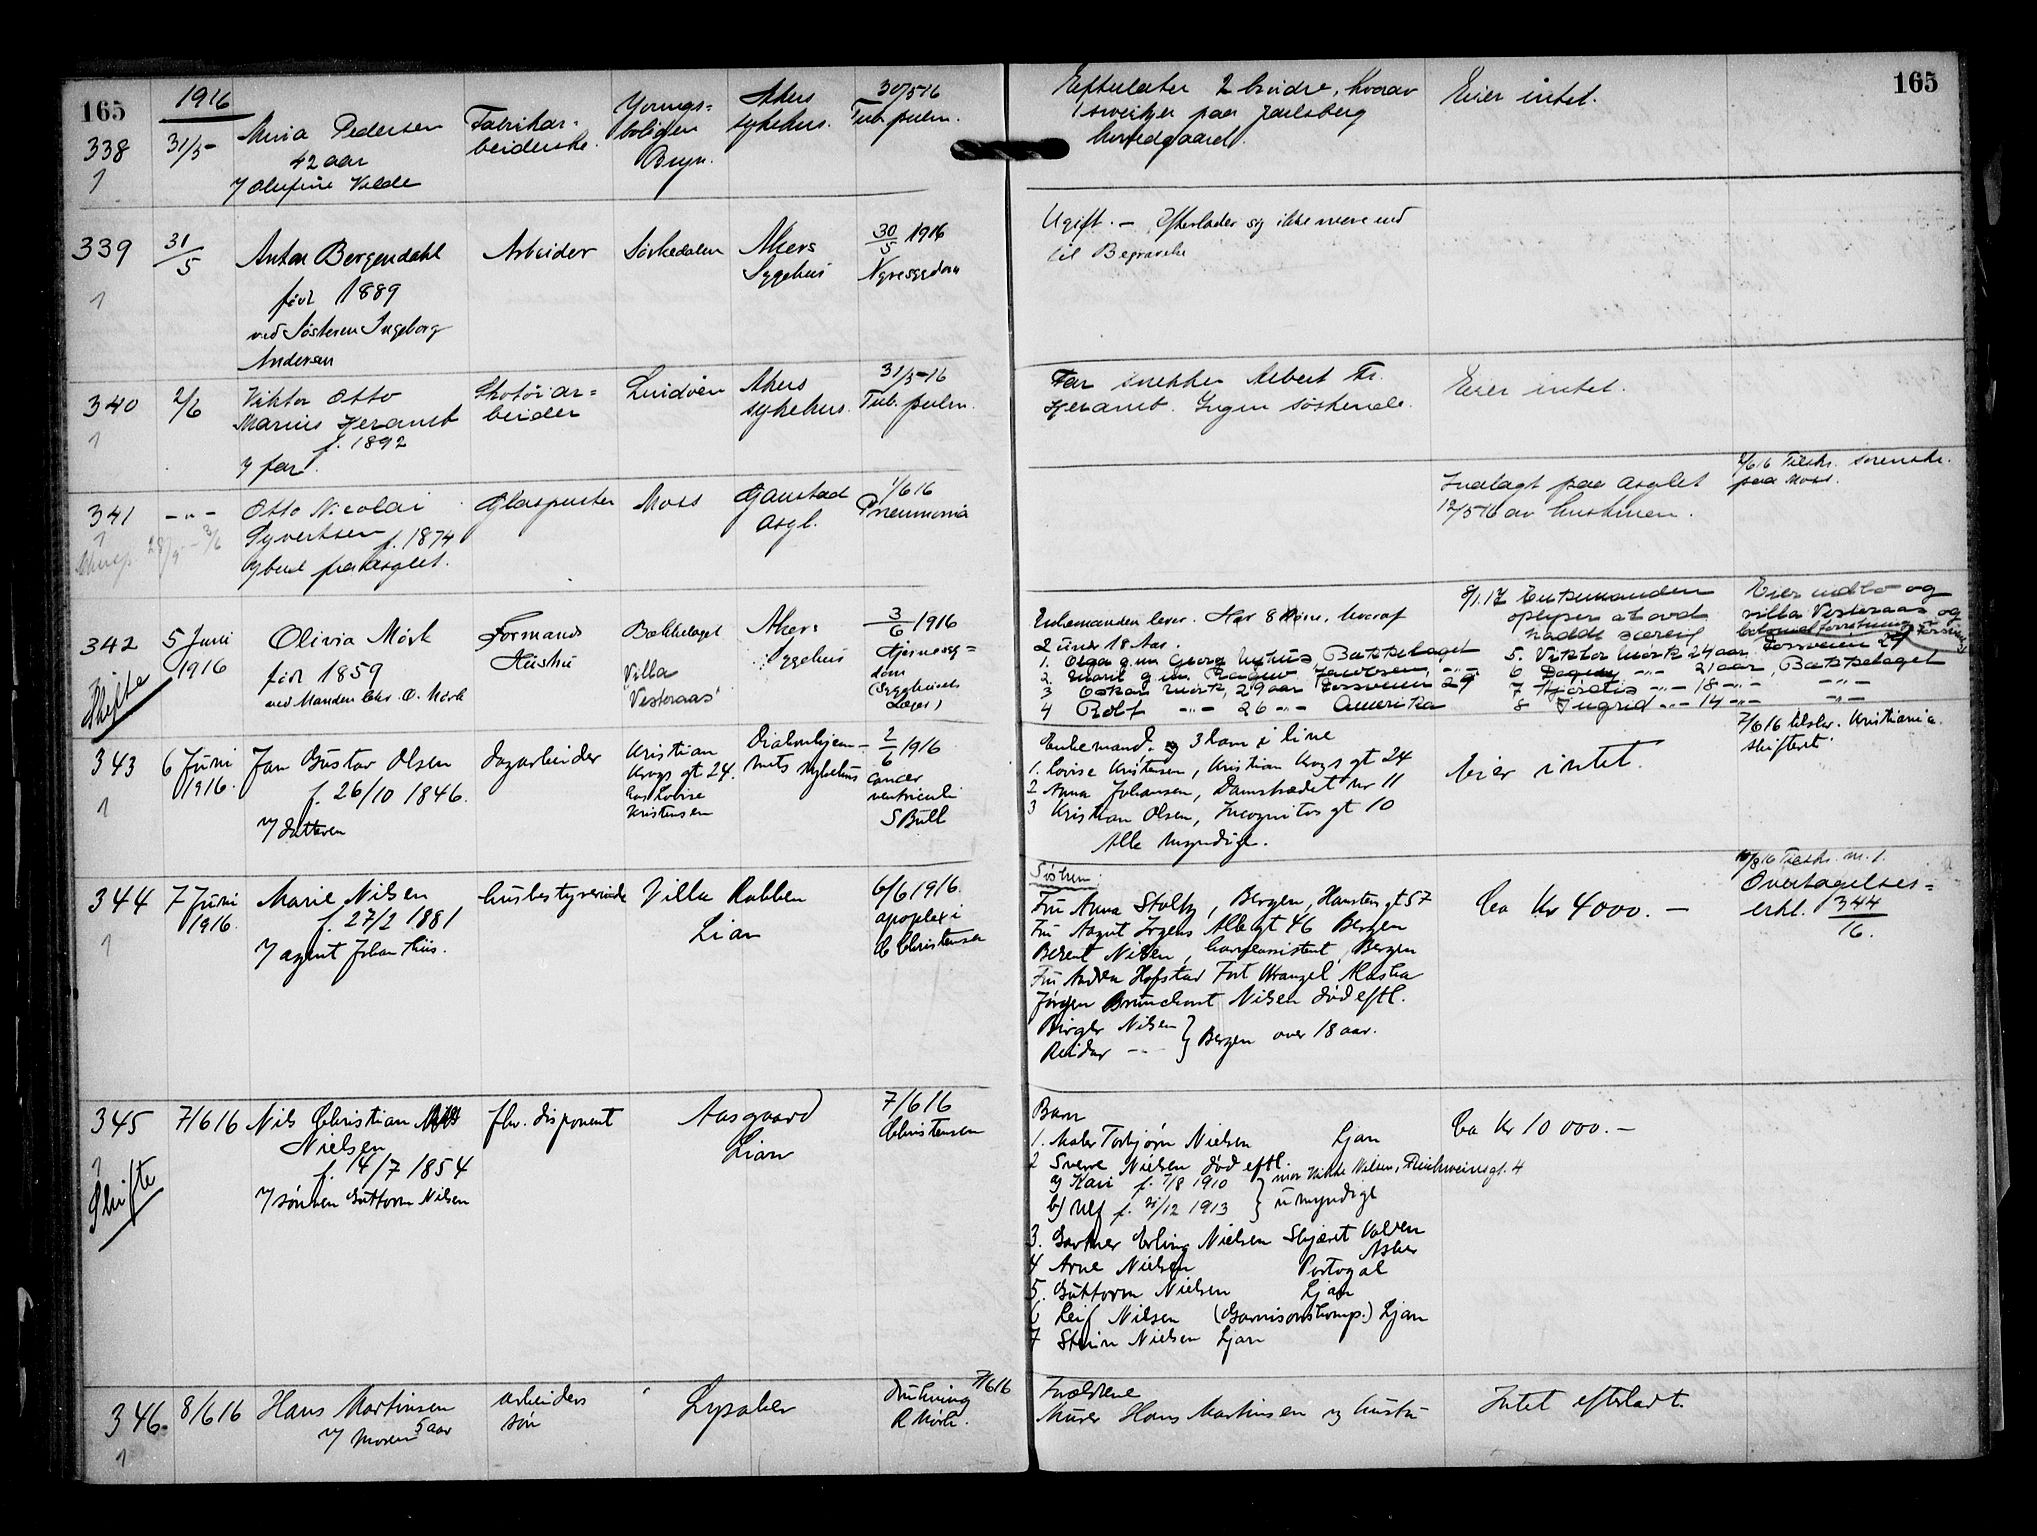 165
1916
338
1
31/5 -
Pedersen
42 aar
Fabrikar=
beiderske.
Bryn.
Akers
sykehus.
30/5-16
Tub. pulm.
Efterlater 2 brødre, hvorav
1 sveitser paa Jarlsberg
hovedgaard.
Eier intet.
165
339
1
31/5
Anton Bergendahl
født 1889
ved Søsteren Ingeborg
Andersen
Arbeider
Sørkedalen
Akers
Sygehus
30/5 1916
Nyresygdom
Ugift. - Efterlader sig ikke mere end
til Begravelse
340
1
2/6
Viktor Otto
Marius
f. 1892
v/ far.
Skotøiar=
beider
Lindøen
Akers
sykehus.
31/5-16
Tub. pulm.
Far snekker Albert Fr.
Ingen søskende.
Eier intet.
341
1
-"-
Otto Nicolai
Syvertsen f. 1874
v/ bud fra asylet.
Glaspuster
Moss
Gaustad
Asyl.
1/6 16
Pneumonia
Indlagt paa asylet
12/5 16 av hustruen.
2/6 16 Tilskr. sorenskr.
paa Moss.
342
Skifte
5 Juni
1916
Olivia Mörk
født 1859
ved Manden Chr. O. Mörk
Formands
Hustru
Bækkelaget
Villa
Vesteraas
Akers
Sygehus
3/6 1916
Hjernesyg=
dom
(Sygehusets
Læge)
Enkemanden lever. Har 8 Børn, hvoraf
2 under 18 Aar.
1. Olga g.m. Georg Bækkelaget
2. Marie g.m. Ragnv. Jacobsen, -"-
3 Oskar Mörk, 29 aar Fossveien 29
4 Rolf -"- 26 -"- Amerika
8/1.17 Enkemanden
oplyser at avd
hadde særeie
5. Viktor Mörk 24 aar, Fossveien 29
6 Dagny -"- 21 aar, Bækkelaget
7 Hjørdis -"- 18 -"- -"-
8 Ingrid -"- 14 -"- -"-
Eier indbo og
villa Vesteraas og
343
1
6 Juni
1916.
Jan Gustav Olsen
f. 26/10 1846.
v/ datteren
dagarbeider
Kristian
Krogs gt 24.
hos Lovise
Kristensen
Diakonhjem-
mets sykehus
2/6 1916
cancer
ventriculi
S Bull
Enkemand. og 3 barn i live
1. Lovise Kristensen, Kristian Krogs gt 24
2 Anna Johansen, Damstrædet nr 11
3 Kristian Olsen, Incognitos gt 10
Alle myndige.
Eier intet.
7/6 16 tilskr. Kristiania
skifteret.
344
1
7 Juni
1916.
Marie Nilsen
f. 27/2 1881
v/ agent Johan Thiis.
husbestyrerinde
Villa Rabben
Lian
6/6 1916.
apoplexi
C Christensen
Søsken:
Fru Anna Stoltz, Bergen, Hansteensgt 57
Fru Aagot Irgens Allegt 46 Bergen
Berent Nilsen, havneassistent, Bergen
Fru Andrea Hofstad Fort Wrangel Alaska
Jørgen Brunchorst Nilsen død eftl.
Birger Nilsen
Reidar -"- } Bergen over 18 aar.
Ca Kr 4000. -
10/8 16 Tilskr. m. 1.
Overtagelses=
erkl. 344/16.
345
1
Skifte
7/6 16
Nils Christian
Nielsen
f. 14/7 1854
v/ sønnen Guttorm Nilsen
fhv. disponent
Aasgaard
Lian
7/6 16
Christensen
Barn
1. Maler Torbjørn Nielsen Ljan
2 Sverre Nielsen død eftl.
a) Kari f. 7/8 1910 } mor Nilsen, Reichweinsgt. 4
b) Ulf f. 21/12 1913 } umyndige
3. Gartner Erling Nielsen Skjæret Valden
Asker
4 Arne Nielsen Portogal
5. Guttorm Nielsen Ljan
6 Leif Nilsen (Garnisonskomp.) Ljan
7 Stein Nielsen Ljan
Ca Kr 10 000. -
346.
1
8/6 16
Hans Martinsen
5 aar
v/ moren
arbeiders
søn
Lysaker
7/6 16
Drukning
R Mörk.
Forældrene
Murer Hans Martinsen og hustru
Intet efterladt.